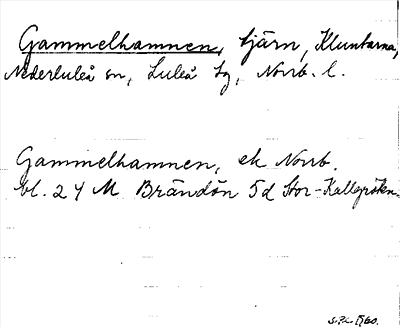 Gammelhamnen, tjärn, Kluntarna,
Nederluleå sn, Luleå tg, Norrb. l.
Gammelhamnen, ek Norrb.
bl. 24 M Brändön 5d Stor-Kallgrötkn.